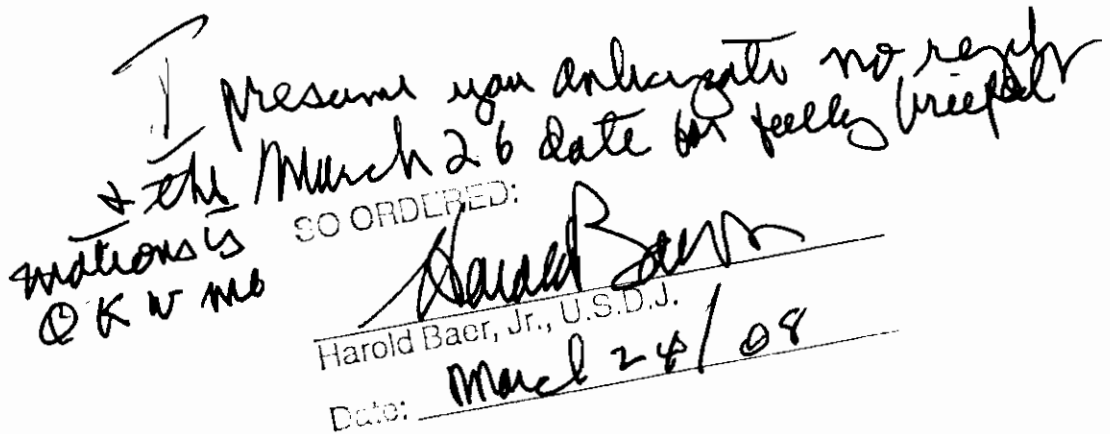 I presume you anticipate no reply
& the March 26 date for fully briefed
motions is
SO ORDERED:
O K w me
Harold Baer
Harold Baer, Jr., U.S.D.J.
Date: March 24/08